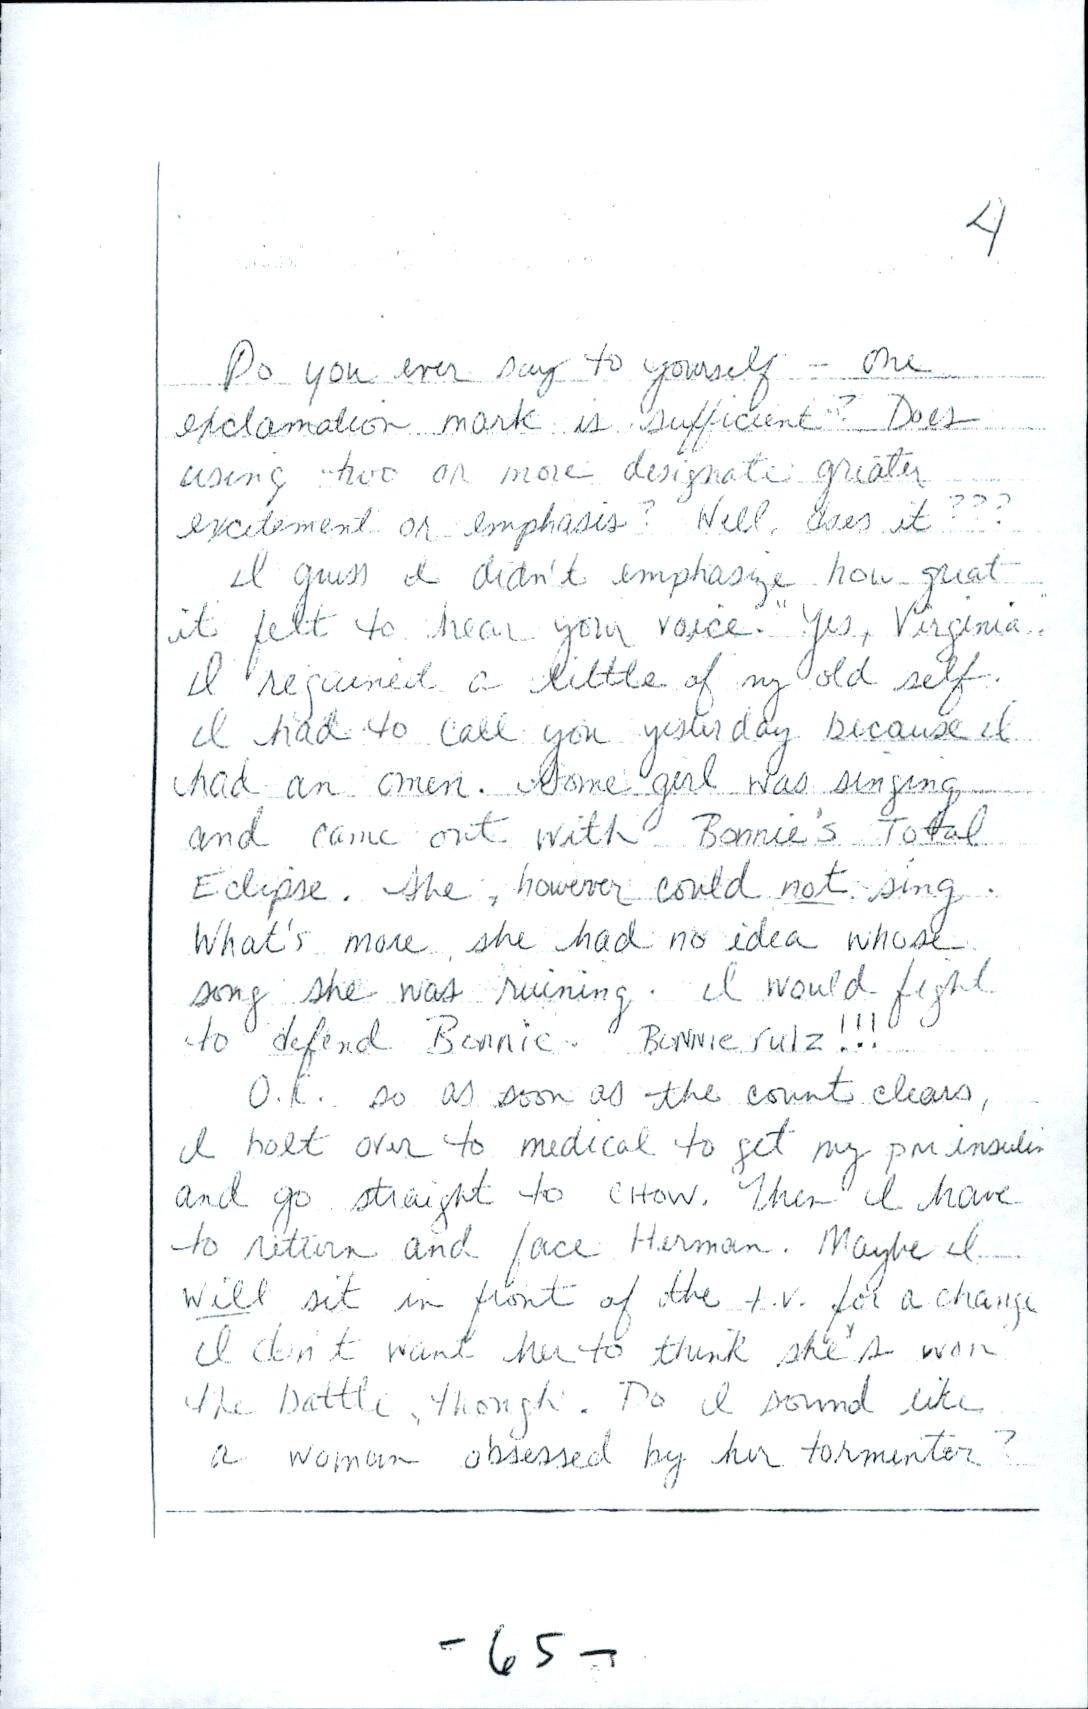 4
Do you ever say to yourself - One
exclamation mark is sufficient? Does
using two or more designate greater
excitement or emphasis? Well, does it???
I guess I didn't emphasize how great
it felt to hear your voice. "Yes, Virginia".
I regained a little of my old self.
I had to call you yesterday because I
had an omen. Some girl was singing
and came out with Bonnie's Total
Eclipse. She, however could not sing.
What's more, she had no idea whose
song she was ruining. I would fight
to defend Bonnie. BONNIE rulz!!!
O.K. so as soon as the count clears,
I bolt over to medical to get my pm insulin
and go straight to CHOW. Then I have
to return and face Herman. Maybe I
will sit in front of the t.v. for a change
I don't want her to think she's won
the battle, though. Do I sound like
a woman obsessed by her tormentor?
- 65 -